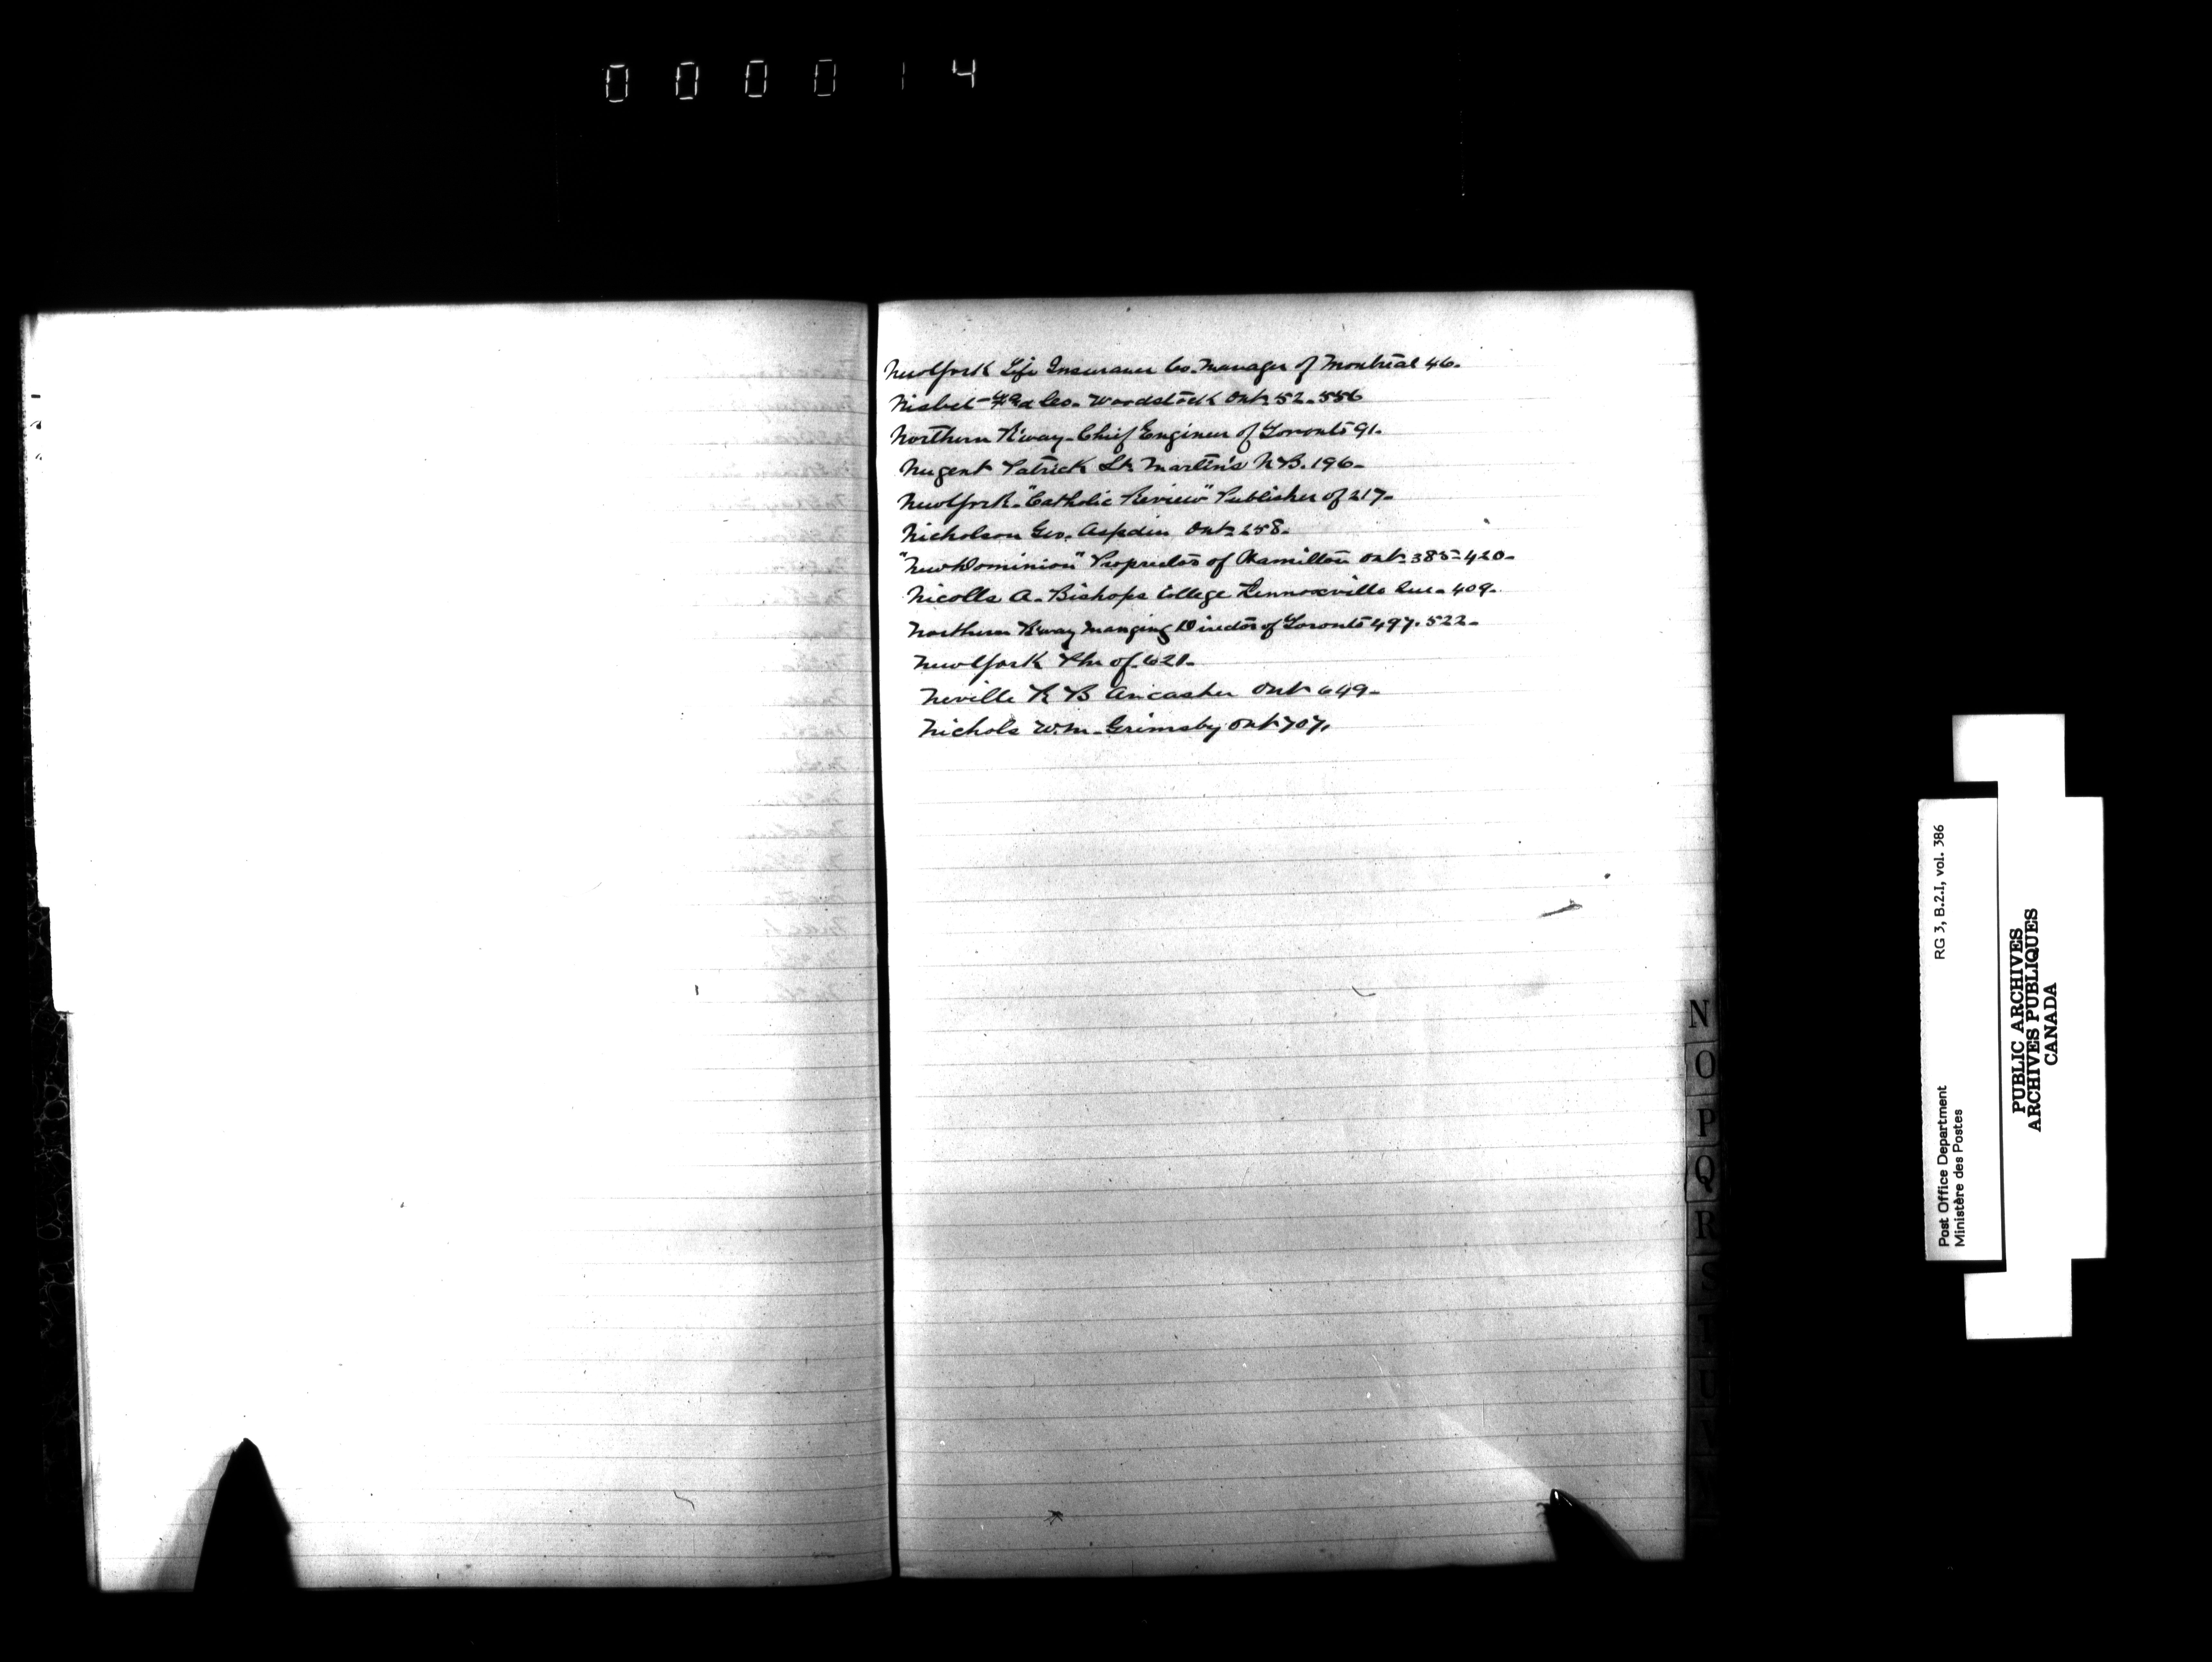 000014
New York Life Insurance Co. Manager of Montreal 46.
Nisbet Geo. Woodstock Ont. 52. 556
Northern R'way. Chief Engineer of Toronto 91.
Nugent Patrick St. Martin's N.B. 196.
New York. "Catholic Review" Publisher of 217.
Nicholson Geo. Aspdin Ont. 258.
"New Dominion" Proprietor of Hamilton Ont. 385-420.
Nicolls A. Bishops College Lennoxville Que. 409.
Northern R'way Manging Director of Toronto 497. 522.
New York Pm of. 621.
Neville R B Ancaster Ont 649.
Nichols W.M. Grimsby Ont 707.
N
O
P
Q
R
S
T
U
Post Office Department RG 3, B.2.I, vol. 386
Ministère des Postes
PUBLIC ARCHIVES
ARCHIVES PUBLIQUES
CANADA